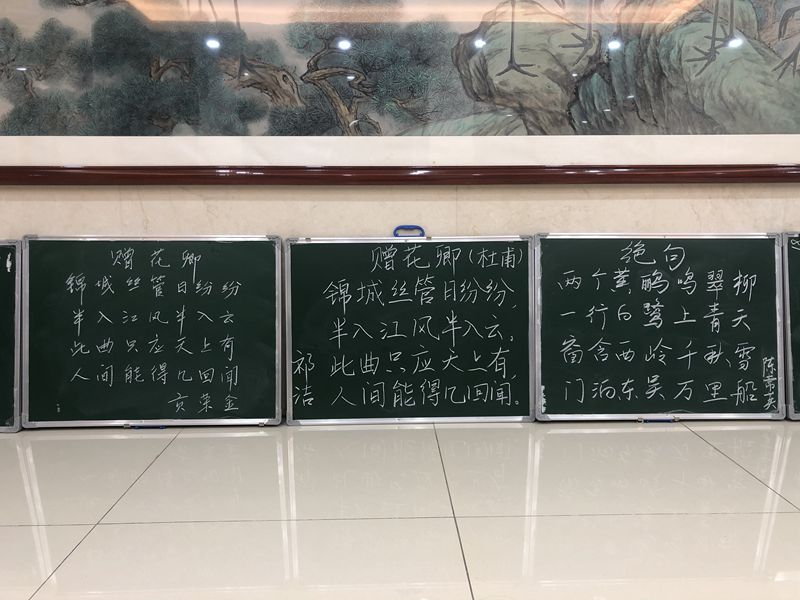 赠花卿
锦城丝管日纷纷
半入江风半入云
此曲只应天上有
人间能得几回闻
贡荣金
赠花卿(杜甫)
锦城丝管日纷纷,
半入江风半入云。
此曲只应天上有,
人间能得几回闻。
祁洁
绝句
两个黄鹂鸣翠柳
一行白鹭上青天
窗含西岭千秋雪
门泊东吴万里船